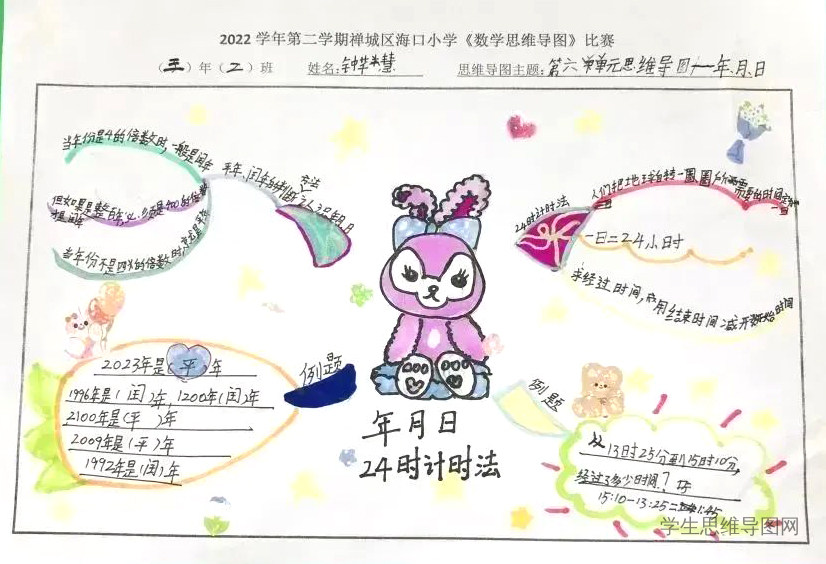 2022 学年第二学期禅城区海口小学《数学思维导图》比赛
（三）年（2）班 姓名：钟芊慧 思维导图主题：第六单元思维导图——年、月、日
当年份是4的倍数时，一般是闰年
平年、闰年的判断方法
认识年月
当年份不是4的倍数时，
24时计时法
人们把地球自转一圈所需要的时间
一日=24小时
求经过时间，常用结束时间减开始时间
例题
2023年是（平）年
1996年是（闰）年，1200年（闰）年
2100年是（平 ）年
2009年是（平）年
1992年是（闰）年
年月日
24时计时法
例题
从13时25分到15时10分，
经过了多少时间？
15:10-13:25=1:45
学生思维导图网